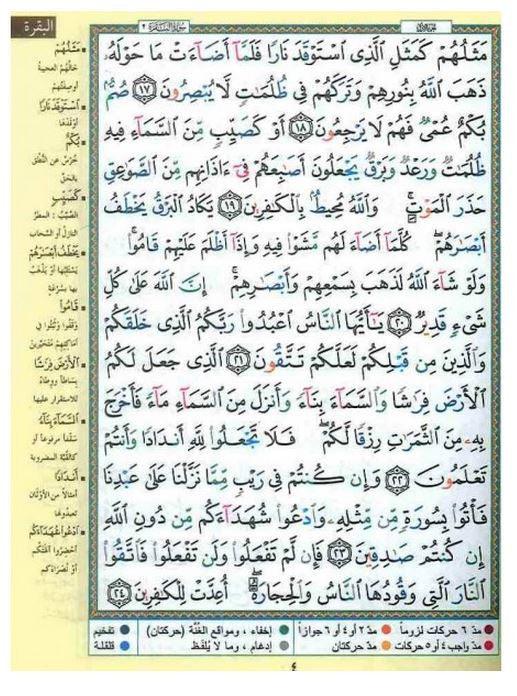 البقرة
سورة البقرة ٢
الجزء الأول
مَثَلُهُمْ كَمَثَلِ ٱلَّذِى ٱسْتَوْقَدَ نَارًا فَلَمَّآ أَضَآءَتْ مَا حَوْلَهُۥ
ذَهَبَ ٱللَّهُ بِنُورِهِمْ وَتَرَكَهُمْ فِى ظُلُمَٰتٍ لَّا يُبْصِرُونَ ١٧ صُمٌّۢ
بُكْمٌ عُمْىٌ فَهُمْ لَا يَرْجِعُونَ ١٨ أَوْ كَصَيِّبٍ مِّنَ ٱلسَّمَآءِ فِيهِ
ظُلُمَٰتٌ وَرَعْدٌ وَبَرْقٌ يَجْعَلُونَ أَصَٰبِعَهُمْ فِىٓ ءَاذَانِهِم مِّنَ ٱلصَّوَٰعِقِ
حَذَرَ ٱلْمَوْتِ ۚ وَٱللَّهُ مُحِيطٌۢ بِٱلْكَٰفِرِينَ ١٩ يَكَادُ ٱلْبَرْقُ يَخْطَفُ
أَبْصَٰرَهُمْ ۖ كُلَّمَآ أَضَآءَ لَهُم مَّشَوْا۟ فِيهِ وَإِذَآ أَظْلَمَ عَلَيْهِمْ قَامُوا۟ ۚ
وَلَوْ شَآءَ ٱللَّهُ لَذَهَبَ بِسَمْعِهِمْ وَأَبْصَٰرِهِمْ ۚ إِنَّ ٱللَّهَ عَلَىٰ كُلِّ
شَىْءٍ قَدِيرٌ ٢٠ يَٰٓأَيُّهَا ٱلنَّاسُ ٱعْبُدُوا۟ رَبَّكُمُ ٱلَّذِى خَلَقَكُمْ
وَٱلَّذِينَ مِن قَبْلِكُمْ لَعَلَّكُمْ تَتَّقُونَ ٢١ ٱلَّذِى جَعَلَ لَكُمُ
ٱلْأَرْضَ فِرَٰشًا وَٱلسَّمَآءَ بِنَآءً وَأَنزَلَ مِنَ ٱلسَّمَآءِ مَآءً فَأَخْرَجَ
بِهِۦ مِنَ ٱلثَّمَرَٰتِ رِزْقًا لَّكُمْ ۖ فَلَا تَجْعَلُوا۟ لِلَّهِ أَندَادًا وَأَنتُمْ
تَعْلَمُونَ ٢٢ وَإِن كُنتُمْ فِى رَيْبٍ مِّمَّا نَزَّلْنَا عَلَىٰ عَبْدِنَا
فَأْتُوا۟ بِسُورَةٍ مِّن مِّثْلِهِۦ وَٱدْعُوا۟ شُهَدَآءَكُم مِّن دُونِ ٱللَّهِ
إِن كُنتُمْ صَٰدِقِينَ ٢٣ فَإِن لَّمْ تَفْعَلُوا۟ وَلَن تَفْعَلُوا۟ فَٱتَّقُوا۟
ٱلنَّارَ ٱلَّتِى وَقُودُهَا ٱلنَّاسُ وَٱلْحِجَارَةُ ۖ أُعِدَّتْ لِلْكَٰفِرِينَ ٢٤
مَثَلُهُمْ
حالُهُم العجيبةُ
أو صِفَتُهُمْ
ٱسْتَوْقَدَ نَارًا
أوْقَدَها
بُكْمٌ
خُرْسٌ عن النُّطْقِ
بالحقّ
كَصَيِّبٍ
الصَّيِّبُ : المطرُ
النازلُ أو السَّحاب
يَخْطَفُ أَبْصَٰرَهُمْ
يَسْتَلِبُها أوْ يَذْهَبُ
بها بسُرْعَةٍ
قَامُوا۟
وَقَفُوا وثَبَتُوا في
أماكِنِهِمْ مُتَحَيِّرينَ
ٱلْأَرْضَ فِرَٰشًا
بِسَاطاً ووِطاءً
للاستقرار عليها
ٱلسَّمَآءَ بِنَآءً
سَقْفاً مرفوعاً أو
كالقُبَّةِ المضروبة
أَندَادًا
أمثالاً من الأوثان
تعبدُونها
ٱدْعُوا۟ شُهَدَآءَكُم
أحْضِرُوا آلهتكُم
أو نُصَراءكم
مدّ ٦ حركات لزوماً
مدّ ٢ أو ٤ أو ٦ جوازاً
إخفاء، ومواقع الغُنَّة (حركتان)
تفخيم
مدّ واجب ٤ أو ٥ حركات
مدّ حركتان
إدغام، وما لا يُلفَظ
قلقلة
٤